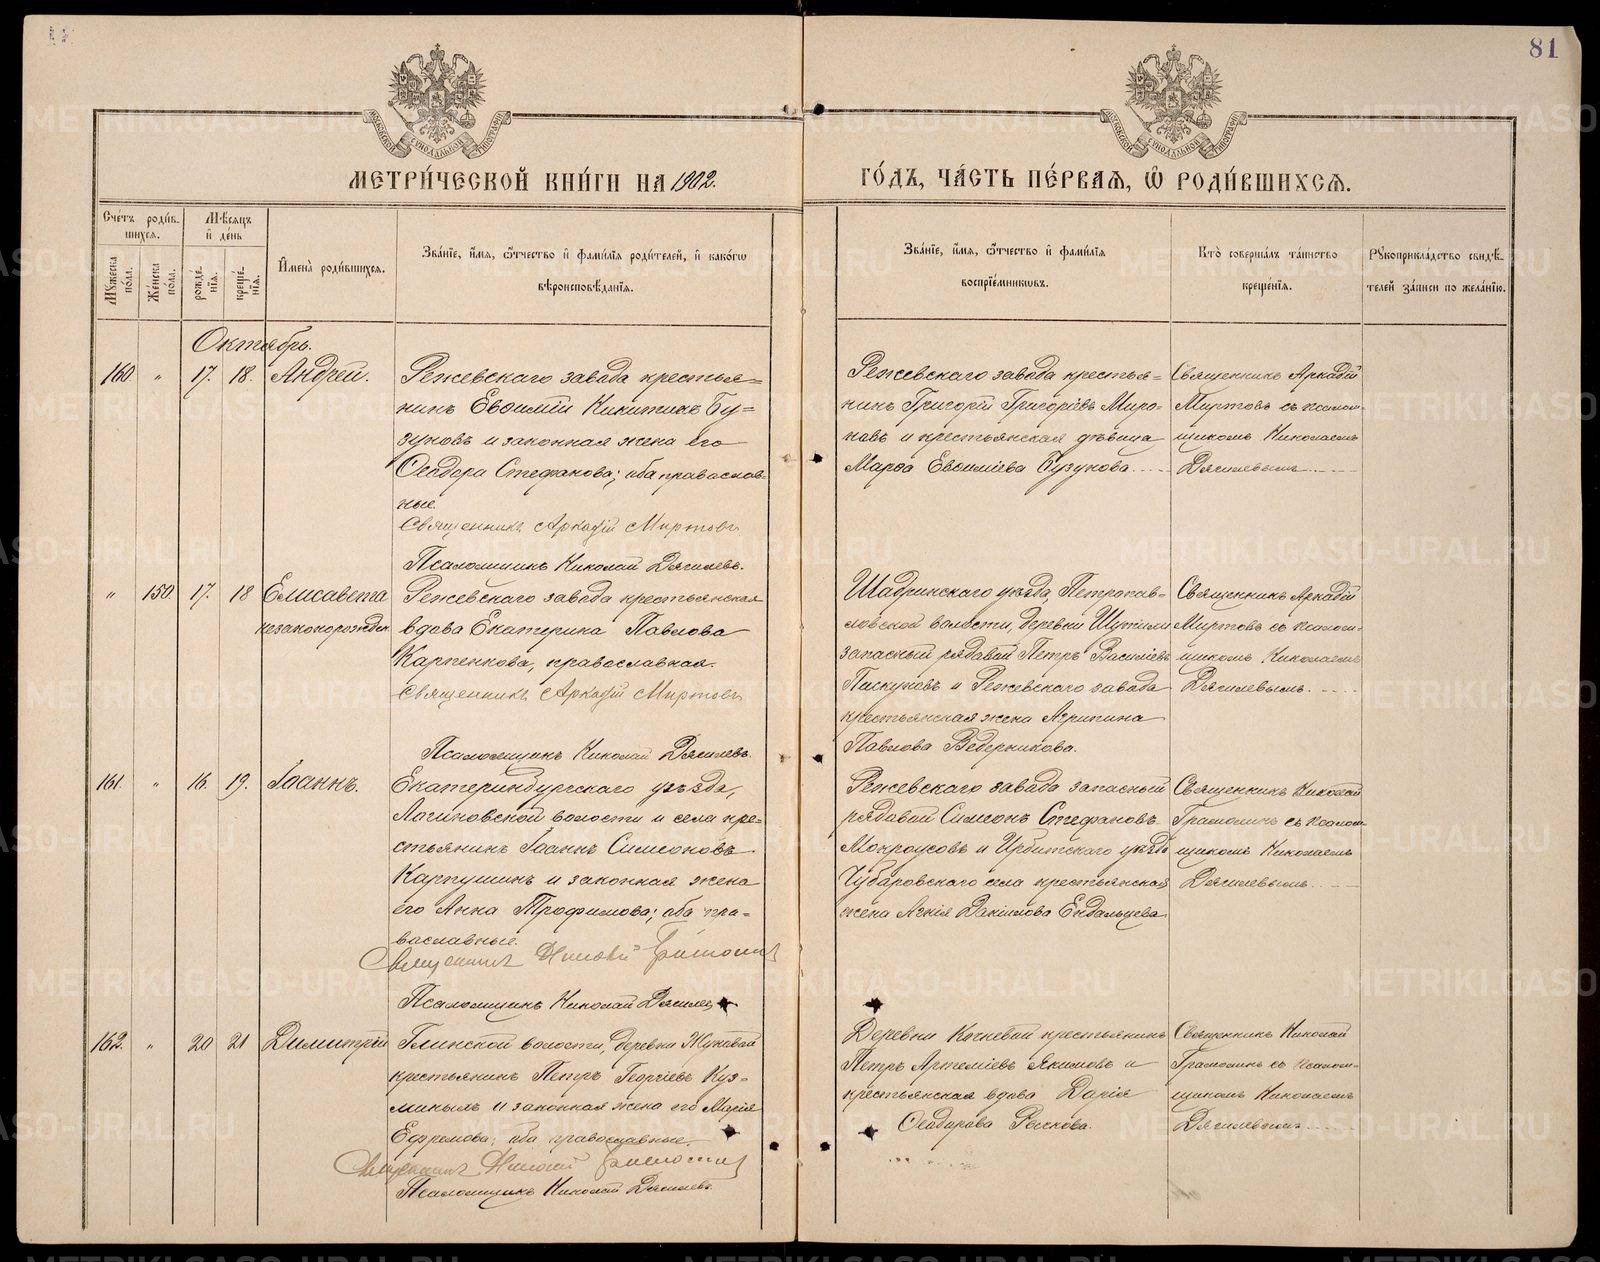 81
МОСКОВСКОЙ СѴНОДАЛЬНОЙ ТИПОГРАФІИ
МОСКОВСКОЙ СѴНОДАЛЬНОЙ ТИПОГРАФІИ
МЕТРИ́ЧЕСКОЙ КНИ́ГИ НА 1902.
ГО́ДЪ, ЧА́СТЬ ПЕ́РВАѦ, Ѡ҆ РОДИ́ВШИХСѦ.
Сче́тъ роди́в-
шихсѧ.
Мѣ́сѧцъ
и҆ де́нь
Мꙋ́жеска по́ла.
Же́нска по́ла.
рожде́-
нїѧ.
креще́-
нїѧ.
И҆мена̀ роди́вшихсѧ.
Зва́нїе, и҆́мѧ, ѻ҆́тчество и҆ фами́лїѧ роди́телей, и҆ како́гѡ
вѣроисповѣ́данїѧ.
Зва́нїе, и҆́мѧ, ѻ҆́тчество и҆ фами́лїѧ
воспрїе́мникѡвъ.
Кто̀ соверша́лъ та́инство
креще́нїѧ.
Рꙋкоприкла́дство свидѣ́-
телей за́писи по жела́нїю.
Октябрь.
160 " 17. 18. Андрей.
Режевскаго завода крестья=
нинъ Евѳимій Никитинъ Бу=
зуновъ и законная жена его
Ѳеодора Стефанова; оба православ-
ные.
Священникъ Аркадій Миртовъ
Псаломщикъ Николай Дягилевъ.
Режевскаго завода крестья-
нинъ Григорій Григоріевъ Миро-
новъ и крестьянская дѣвица
Марѳа Евѳиміева Бузунова
Священникъ Аркадій
Миртовъ съ псалом-
щикомъ Николаемъ
Дягилевымъ
" 150. 17. 18 Елисавета
незаконорожден.
Режевскаго завода крестьянская
вдова Екатерина Павлова
Карпенкова, православная.
Священникъ Аркадій Миртовъ
Псаломщикъ Николай Дягилевъ.
Шадринскаго уѣзда, Петропав-
ловской волости, деревни
запасный рядовой Петръ Василіевъ
Пискуновъ и Режевскаго завода
крестьянская жена Агрипина
Павлова Ведерникова.
Священникъ Аркадій
Миртовъ съ псалом-
щикомъ Николаемъ
Дягилевымъ.
161. " 16. 19. Іоаннъ.
Екатеринбургскаго уѣзда,
Логиновской волости и села кре-
стьянинъ Іоаннъ Симеоновъ
Карпушинъ и законная жена
его Анна Трофимова; оба пра-
вославные.
Священникъ Николай Грамолинъ
Псаломщикъ Николай Дягилевъ
Режевскаго завода запасный
рядовой Симеонъ Стефановъ
Мокроусовъ и Ирбитскаго уѣзда
Чубаровскаго села крестьянская
жена Агнія Даніилова Ендальцева.
Священникъ Николай
Грамолинъ съ псалом-
щикомъ Николаемъ
Дягилевымъ
162. " 20 21 Димитрій
Глинской волости, деревни Жуковой
крестьянинъ Петръ Георгіевъ Куз-
миныхъ и законная жена его Марія
Ефремова; оба православные.
Священникъ Николай Грамолинъ
Псаломщикъ Николай Дягилевъ.
Деревни Кочневой крестьянинъ
Петръ Артеміевъ Якимовъ и
крестьянская вдова Дарія
Ѳеодорова Рычкова.
Священникъ Николай
Грамолинъ съ псалом-
щикомъ Николаемъ
Дягилевымъ
METRIKI.GASO-URAL.RU